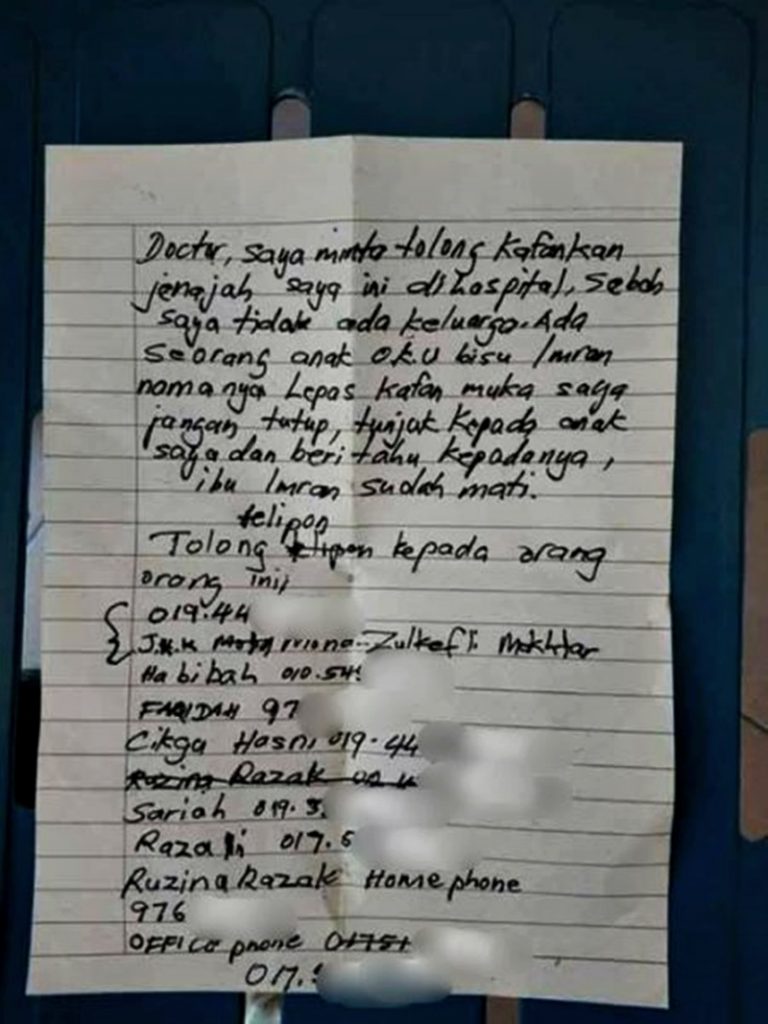 Doctor, saya minta tolong kafankan
jenajah saya ini dihospital, sebab
saya tidak ada keluarga. Ada
seorang anak O.K.U bisu Imran
nama nya Lepas kafan muka saya
jangan tutup, tunjuk kepada anak
saya dan beri tahu kepadanya,
ibu Imran sudah mati.
telipon
Tolong telipon kepada orang
orang ini,
019.44
J.K.K Zulkefli Mokhtar
Habibah 010.54
FARIDAH 97
Cikga Hasni 019.44
Ruzina Razak
Sariah 019.3
Razali 017.6
Ruzina Razak Home phone
976
OFFICe phone 01751
017.9